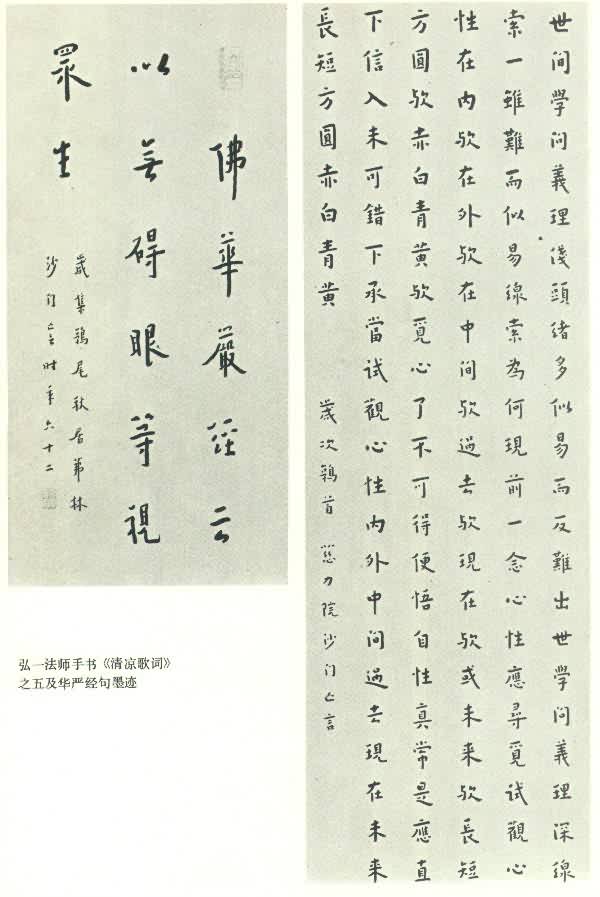 佛華嚴經云
以無碍眼等視
眾生
歲集鶉尾秋居茀林
沙门亡言时年六十二
弘一法师手书《清凉歌词》
之五及华严经句墨迹
世间學问義理淺頭緒多似易而反難出世學问義理深線
索一雖難而似易線索為何現前一念心性應尋覓試觀心
性在内欤在外欤在中间欤過去欤現在欤或未来欤長短
方圓欤赤白青黄欤覓心了不可得便悟自性真常是應直
下信入未可錯下承當試觀心性内外中间過去現在未来
長短方圓赤白青黄 歲次鶉首 慈力院沙门亡言